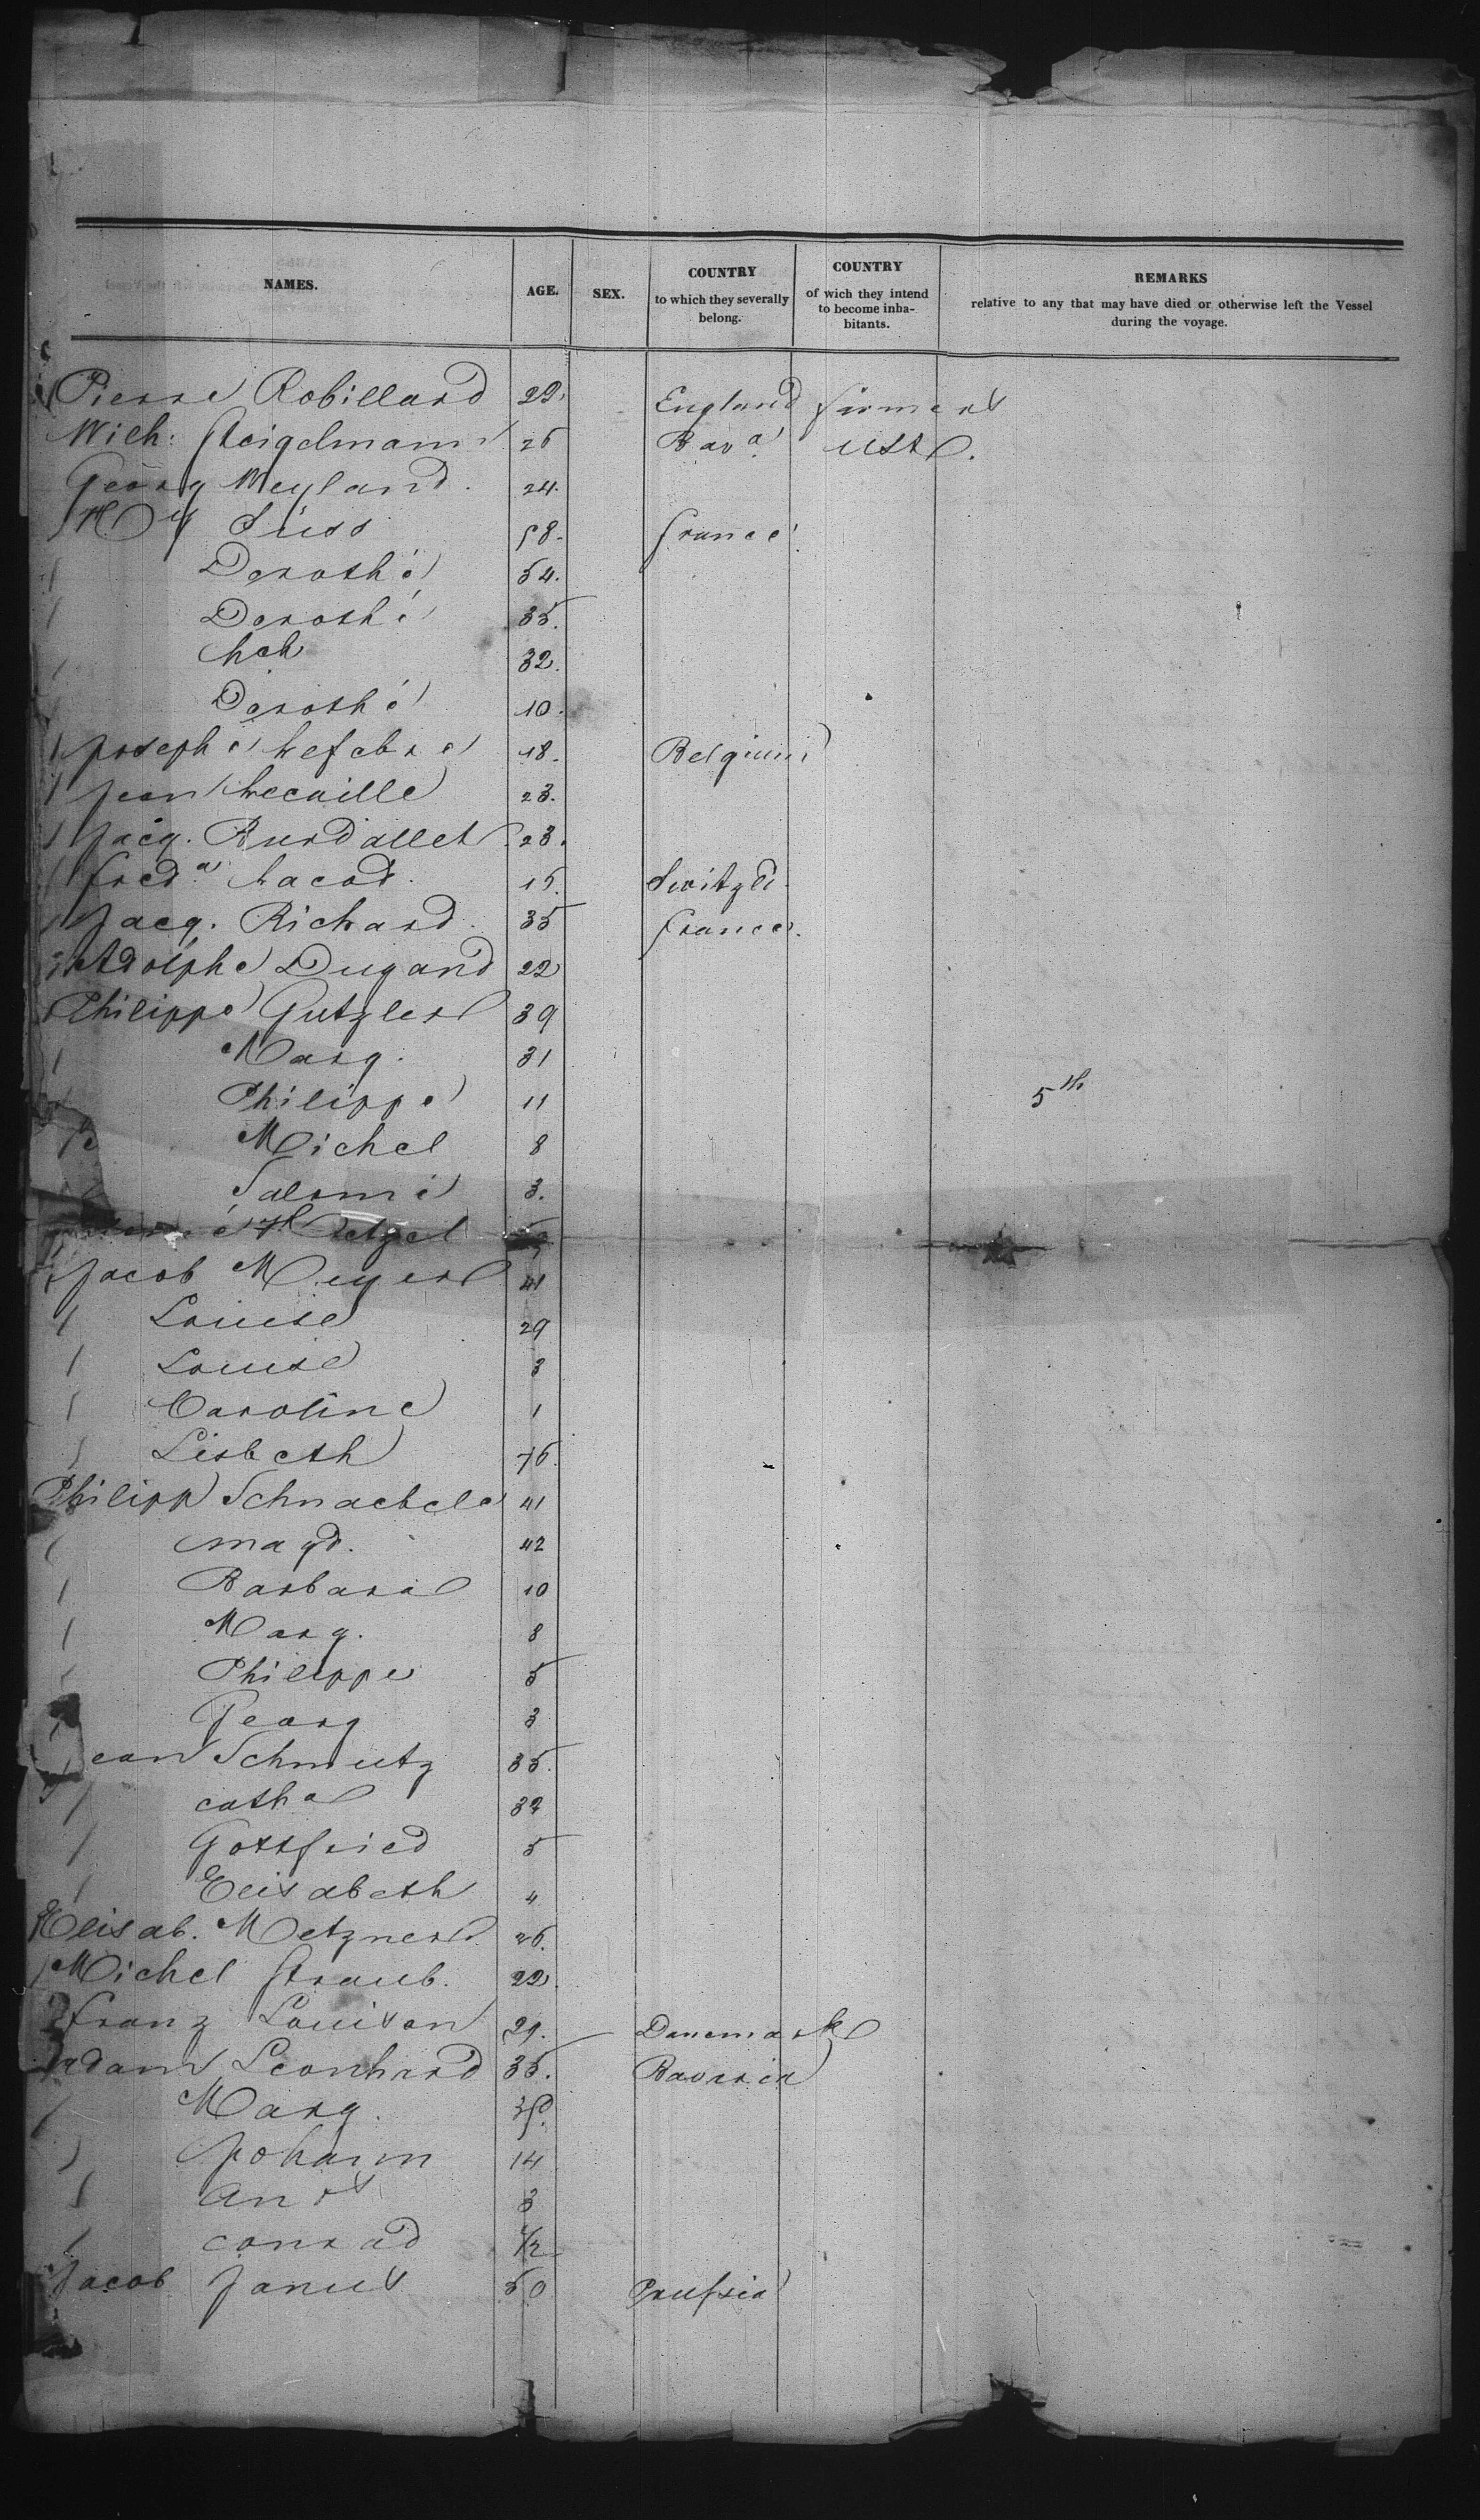 NAMES. AGE. SEX. COUNTRY to which they severally belong. COUNTRY of wich they intend to become inhabitants. REMARKS relative to any that may have died or otherwise left the Vessel during the voyage.
Pierre Robillard 29. England farmers
Mich: Steigelmann 26 Bava USA.
Georg Weyland. 24.
Süss 58. france
Dorothé 54.
Dorothé 35.
32.
Dorothé 10.
Josephe Lefebre 18. Belgium
Jean Lecaille 23.
Jacq. Burdallet 23.
fred Lacod. 15. Switzd.
Jacq. Richard. 35 france.
Adolphe Dugand 22
Philippe Gutzler 39
Marg. 31
Philippe 11 5th
Michel 8
Salomé 3.
Hetzel
Jacob Meyer 41
Louise 29
Louise 3
Caroline 1
Lisbeth 76.
Philipp Schnaebele 41
magd. 42
Barbara 10
Marg. 8
Philippe 5
Georg 3
Jean Schmutz 35.
catha 32
Gottfried 5
Elisabeth 4
Elisab. Metzner 26.
Michel Straub. 22.
franz Louison 29. Danemark
Adam Leonhard 35. Bavaria
Marg.
Johann 14
3
conrad 1/2
Jacob Janus 50 Prussia